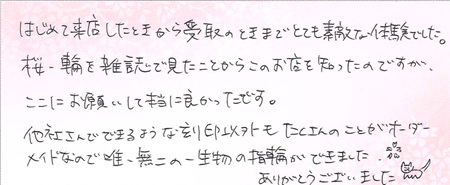 はじめて来店したときから受取のときまでとても素敵な体験でした。
桜一輪を雑誌で見たことからこのお店を知ったのですが、
ここにお願いして本当に良かったです。
他社さんでできるような刻印以外もたくさんのことがオーダー
メイドなので唯一無二の一生物の指輪ができました
ありがとうございました